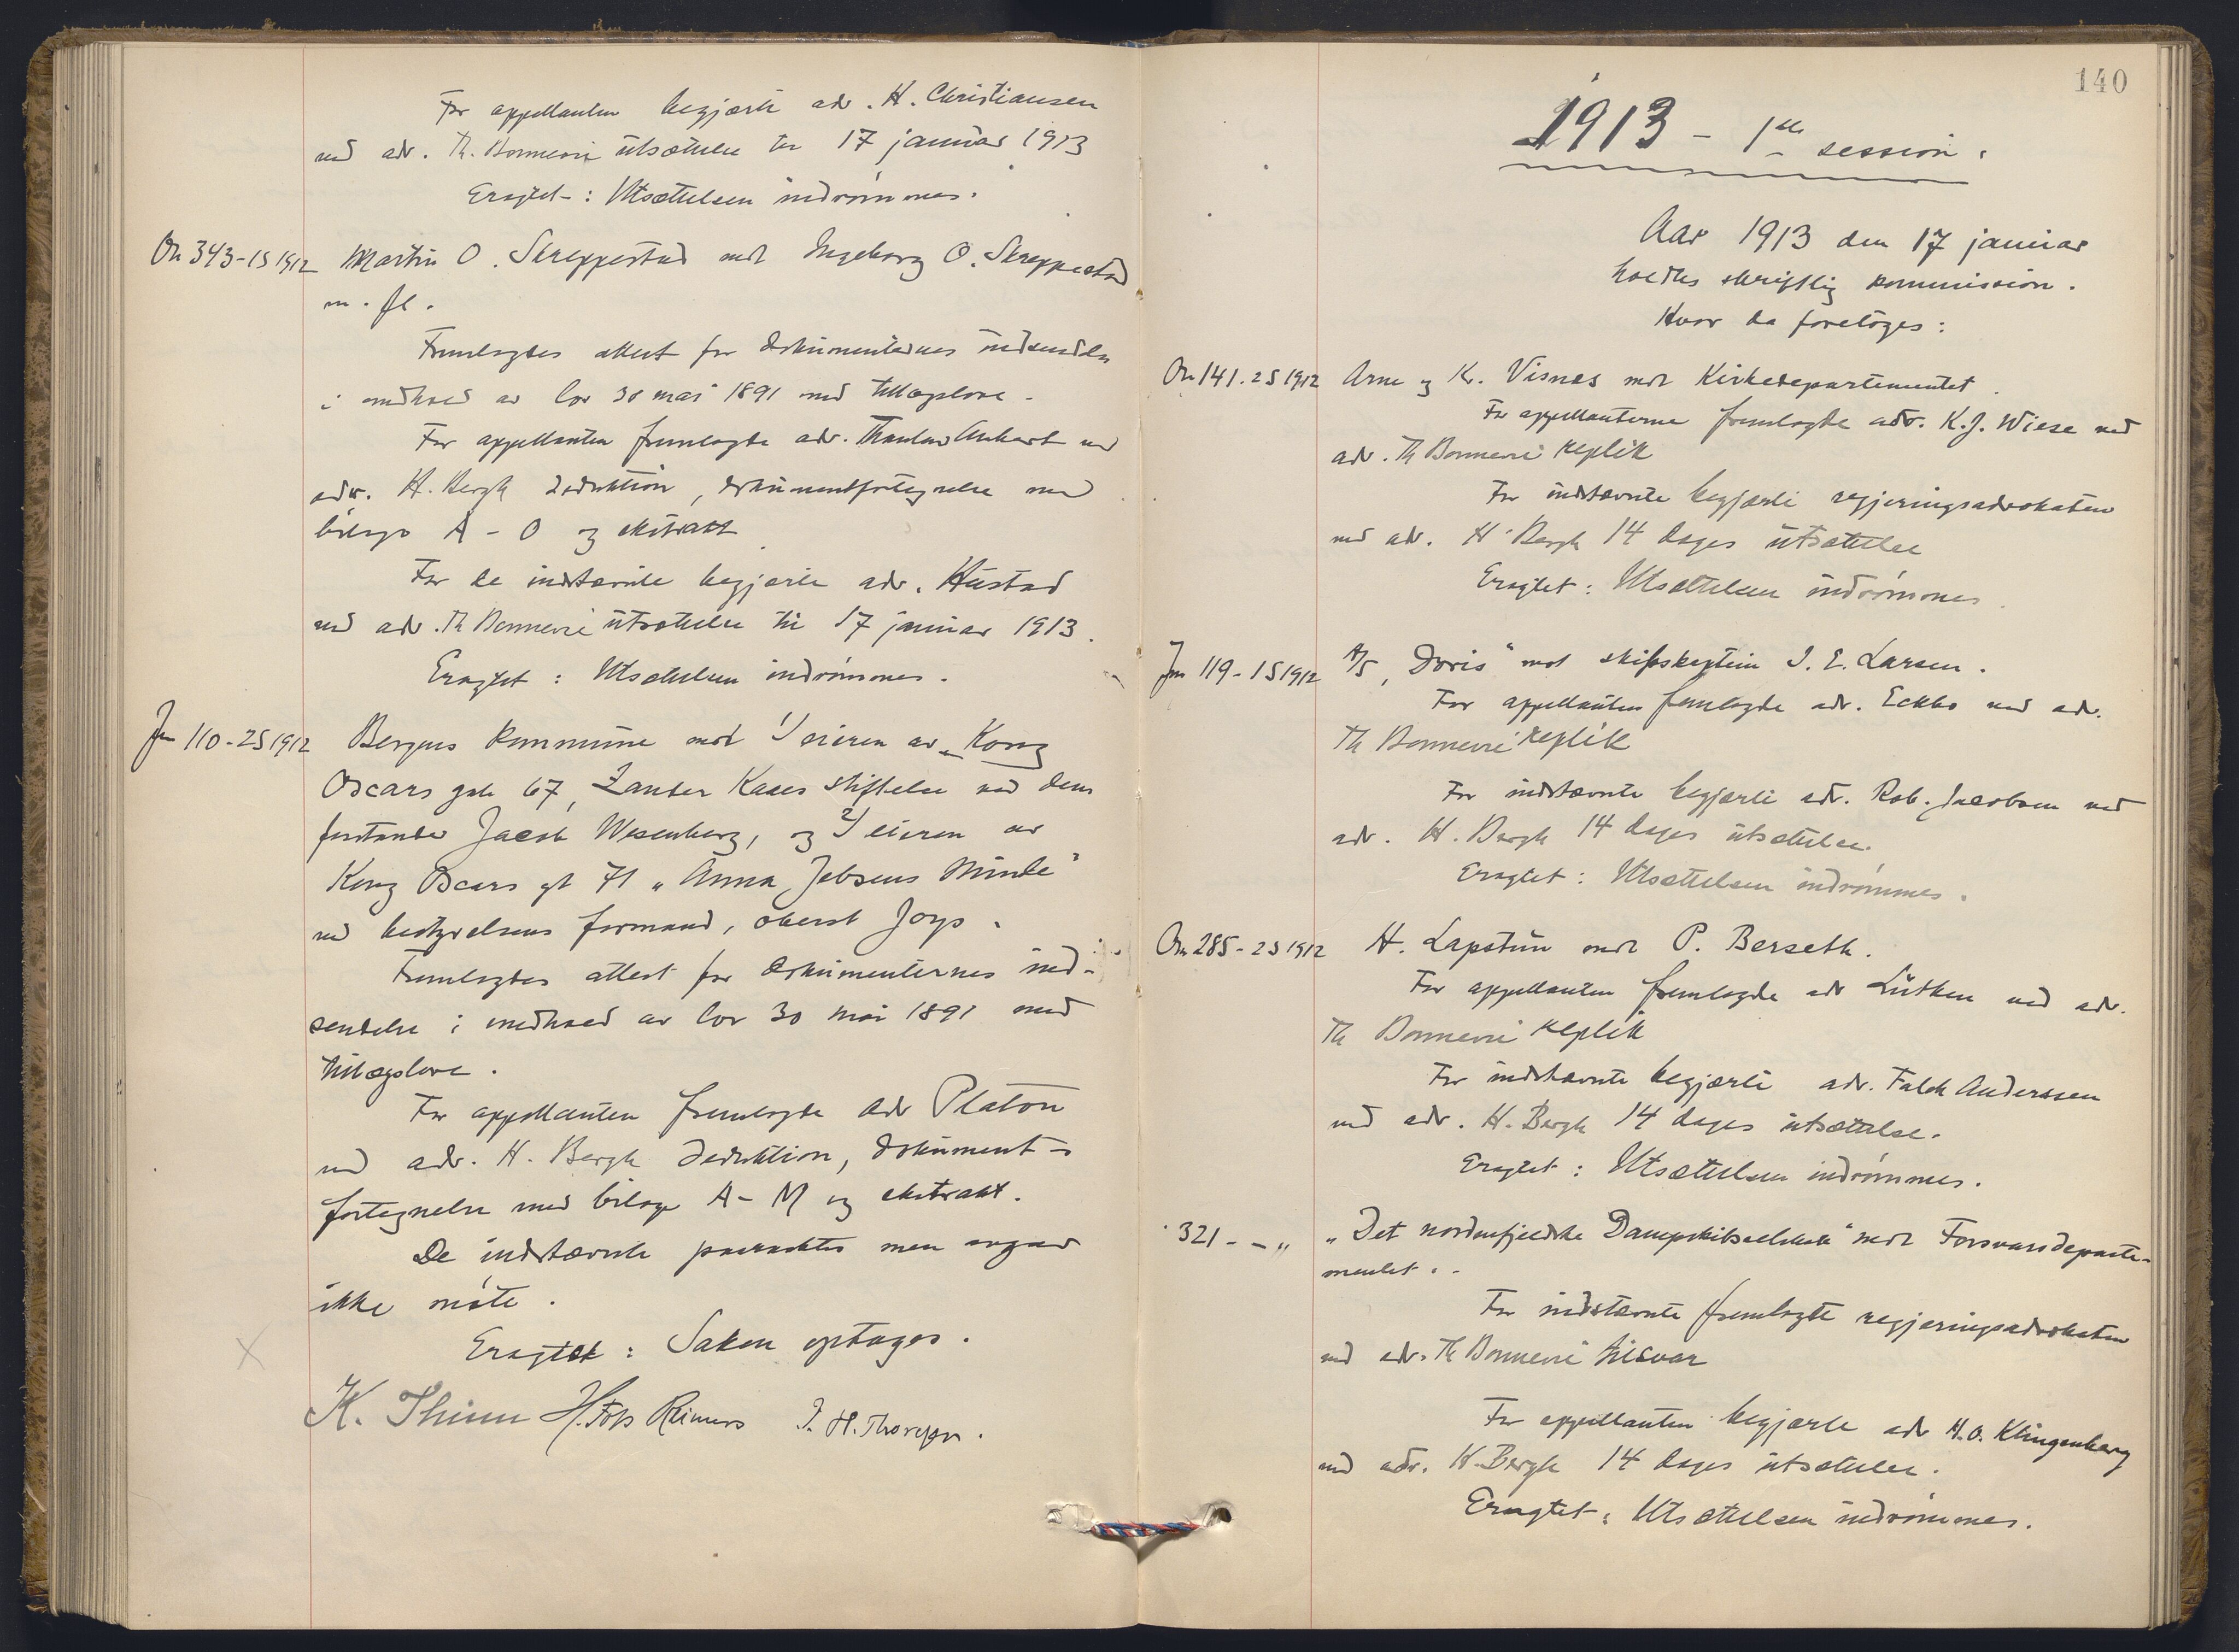 For appellanten begjærte adv. H. Christiansen
ved adv. Th. Bonnevie utsættelse til 17 januar 1913
Eragtet: Utsættelsen indrømmes.
On 343-1S 1912 Martin O. Skreppestad mot Ingeborg O. Skreppestad
m. fl.
Fremlagdes attest for dokumenternes indsendelse
i medhold av lov 30 mai 1891 med tillægslove.
For appellanten fremlagde adv. ved
adv. H. Bergh deduktion, dokumentfortegnelse med
bilage A - O og ekstrakt
For de indstævnte begjærte adv. Hustad
ved adv. Th Bonnevie utsættelse til 17 januar 1913.
Eragtet: Utsættelsen indrømmes.
Jm 110-2S 1912 Bergens kommune mot 1/ eieren av „Kong
Oscars gate 67, Zander Kaaes stiftelse ved dens
forstander Jacob Wesenberg, og 2/ eieren av
Kong Oscars gt 71 „Anna Jebsens Minde"
ved bestyrelsens formand, oberst Joys.
Fremlagdes attest for dokumenternes ind-
sendelse i medhold av lov 30 mai 1891 med
tillægslove.
For appellanten fremlagde adv Platou
ved adv. H. Bergh deduktion, dokument-
fortegnelse med bilage A - M og ekstrakt.
De indstævnte paaraabtes men avgav
ikke møte.
Eragtet: Saken optages.
K. Thinn H. Foss Reimers T. H. Thoresen.
140
1913 - 1ste session.
Aar 1913 den 17 januar
holdtes skriftlig kommission.
Hvor da foretoges:
On 141. 2S 1912 Arne og Kr. Visnes mot Kirkedepartementet
For appellanterne fremlagde adv. K. J. Wiese ved
adv. Th Bonnevie replik
For indstævnte begjærte regjeringsadvokaten
ved adv. H. Bergh 14 dages utsættelse
Eragtet: Utsættelsen indrømmes.
Jm 119-1S 1912 A/S „Doris" mot skibskaptein J. E. Larsen.
For appellanten fremlagde adv. Eckbo ved adv.
Th Bonnevie replik
For indstævnte begjærte adv. Rob. Jacobsen ved
adv. H. Bergh 14 dages utsættelse.
Eragtet: Utsættelsen indrømmes.
On 285-2S 1912 H. Lapstun mot P. Berseth.
For appellanten fremlagde adv Lütken ved adv.
Th Bonnevie replik
For indstævnte begjærte adv. Falch Anderssen
ved adv. H. Bergh 14 dages utsættelse.
Eragtet: Utsættelsen indrømmes.
321 - - „ „Det nordenfjeldske Dampskibsselskab" mot Forsvarsdeparte-
mentet.
For indstævnte fremlagde regjeringsadvokaten
ved adv. Th Bonnevie tilsvar
For appellanten begjærte adv H. O. Klingenberg
ved adv. H. Bergh 14 dages utsættelse.
Eragtet: Utsættelsen indrømmes.